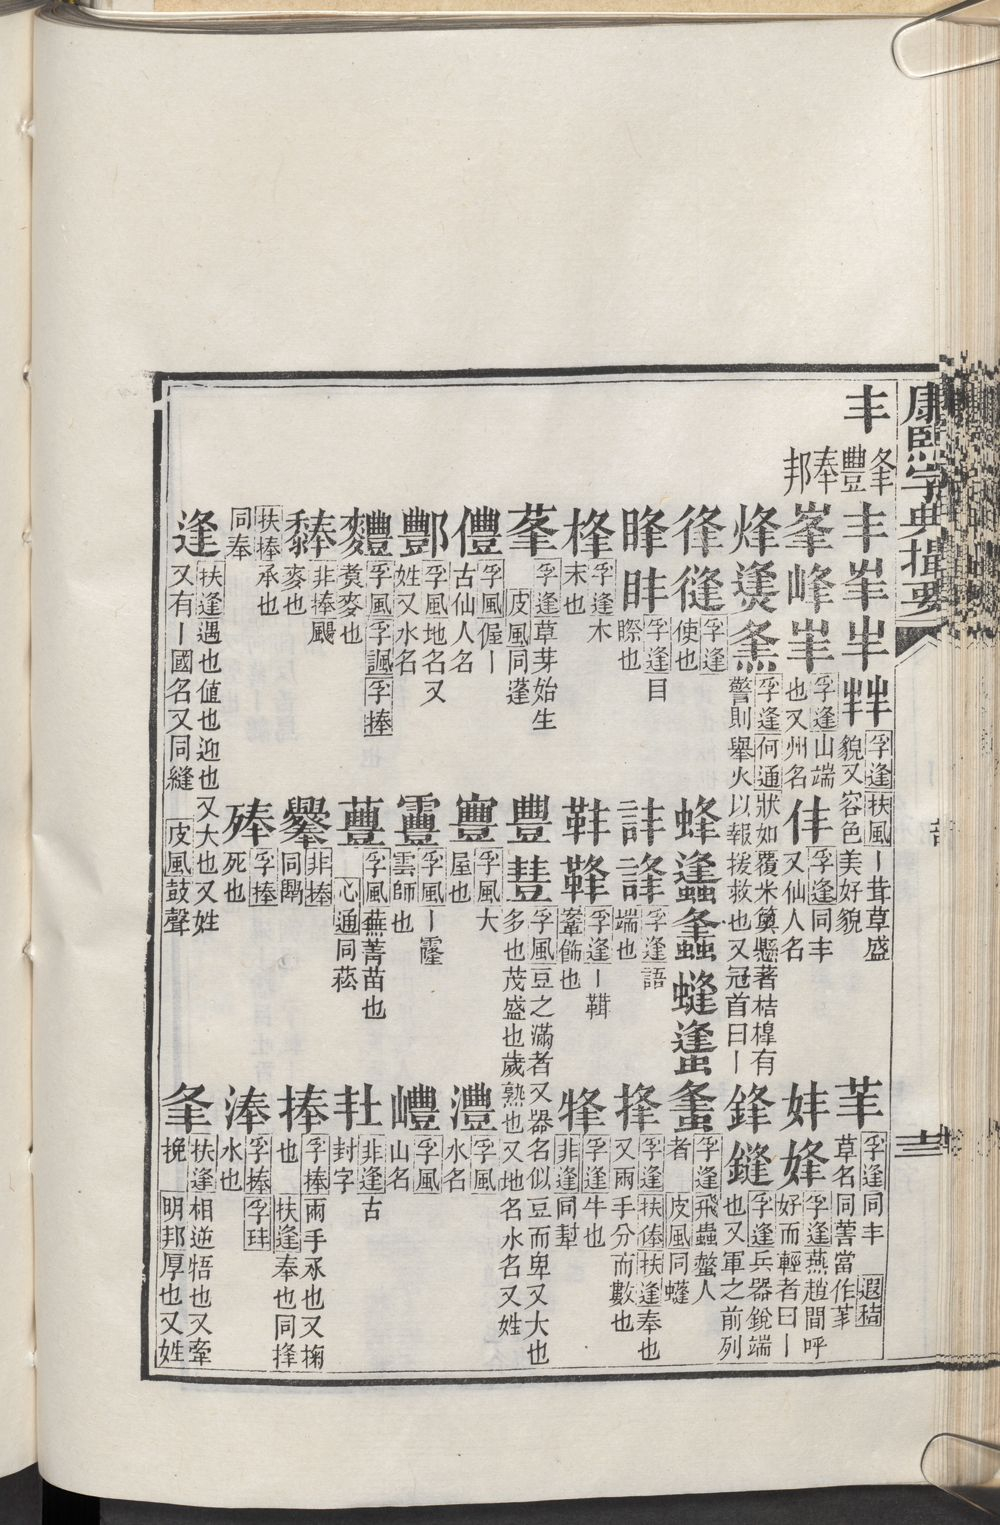 康熙字典撮要
十三
丰
夆豐奉邦
丰
孚逢扶風丨茸草盛
貌又容色美好貌
孚逢同丰
草名同菁當作
峯峰
孚逢山端
也又州名
仹
孚逢同丰
又仙人名
妦㛔
孚逢燕趙間呼
好而輕者曰丨
烽㷭
孚逢何通狀如覆米䉛懸著桔槹有
警則舉火以報援救也又冠首曰丨
鋒鏠
孚逢兵器銳端
也又軍之前列
孚逢
使也
蜂
孚逢飛蟲螫人
者
皮風同
孚逢目
瞭也
孚逢語
端也
捀
孚逢扶俸扶逢奉也
又兩手分而數也
桻
孚逢木
末也
孚逢丨鞧
鞌飾也
孚逢牛也
非逢同犎
莑
孚逢草芽始生
皮風同蓬
豐
孚風豆之滿者又器名似豆而卑又大也
多也茂盛也歲熟也又地名水名又姓
僼
孚風偓丨
古仙人名
寷
孚風大
屋也
灃
孚風
水名
酆
孚風地名又
姓又水名
靊
孚風丨霳
雲師也
㠦
孚風
山名
麷
孚風孚諷孚捧
煑麥也
蘴
孚風蕪菁苗也
心通同菘
非逢古
封字
非捧
麥也
非捧
同
捧
孚捧兩手承也又掬
也
扶逢奉也同捀
扶捧承也
同奉
孚捧
死也
淎
孚捧孚玤
水也
逢
扶逢遇也値也迎也又大也又姓
又有丨國名又同縫
皮風鼓聲
夆
扶逢相逆牾也又牽
挽
明邦厚也又姓